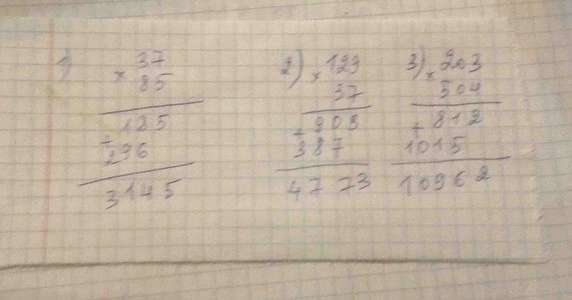 1) 37
× 85
185
+
296
3145
2) × 129
37
+ 903
387
4773
3) × 203
504
+ 812
1015
10962